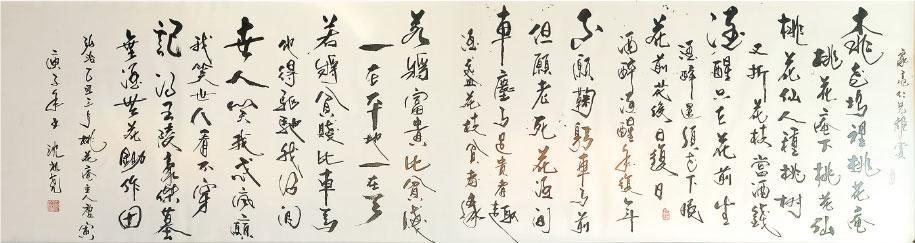 桃花塢裡桃花庵
桃花庵下桃花仙
桃花仙人種桃樹
又折花枝當酒錢
酒醒只在花前坐
酒醉還須花下眠
花前花後日復日
酒醉酒醒年復年
不願鞠躬車馬前
但願老死花酒間
車塵馬足貴者趣
酒盞花枝貧者緣
若將富貴比貧賤
一在平地一在天
若將貧賤比車馬
他得驅馳我得閒
世人笑我忒瘋癲
我笑世人看不穿
記得五陵豪傑墓
無酒無花鋤作田
弘治乙丑三月桃花庵主人唐寅
庚子年